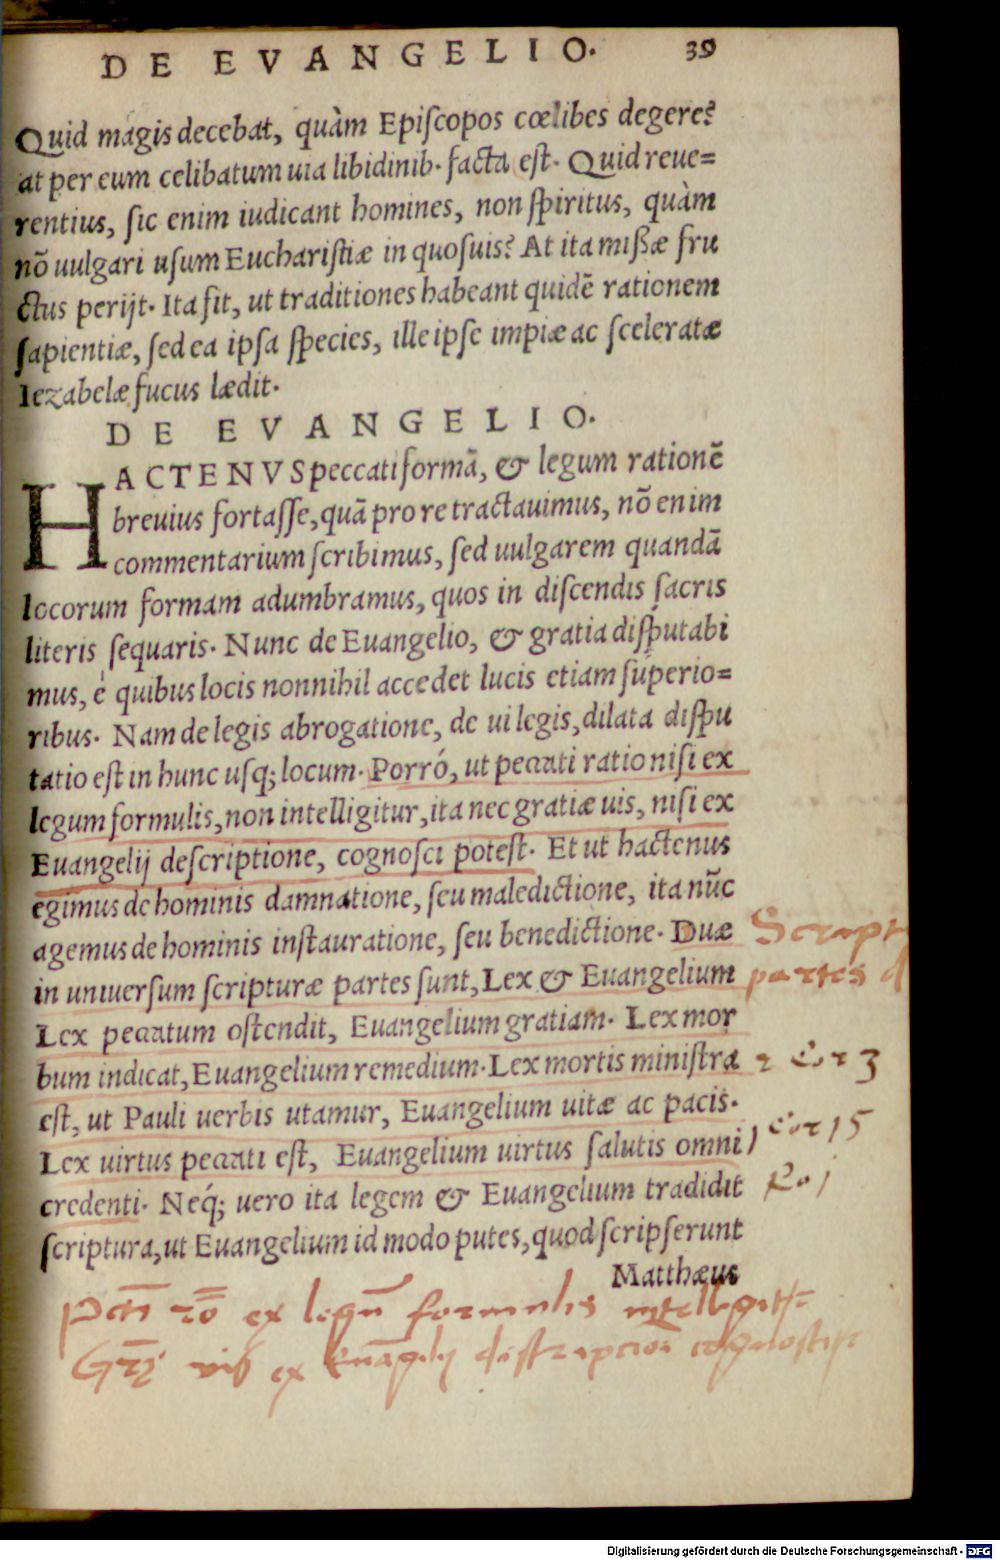 DE EVANGELIO. 39
Quid magis decebat, quàm Epiſcopos cœlibes degere?
at per eum celibatum uia libidinib. facta eſt. Quid reue=
rentius, ſic enim iudicant homines, non ſpiritus, quàm
nō uulgari uſum Euchariſtiæ in quoſuis? At ita mißæ fru
ctus perijt. Ita fit, ut traditiones habeant quidē rationem
ſapientiæ, ſed ea ipſa ſpecies, ille ipſe impiæ ac ſceleratæ
Iezabelæ fucus lædit.
DE EVANGELIO.
HACTENVS peccati formā, & legum rationē
breuius fortaſſe, quā pro re tractauimus, nō enim
commentarium ſcribimus, ſed uulgarem quandā
locorum formam adumbramus, quos in diſcendis ſacris
literis ſequaris. Nunc de Euangelio, & gratia diſputabi
mus, è quibus locis nonnihil accedet lucis etiam ſuperio=
ribus. Nam de legis abrogatione, de ui legis, dilata diſpu
tatio eſt in hunc uſq; locum. Porró, ut peccati ratio niſi ex
legum formulis, non intelligitur, ita nec gratiæ uis, niſi ex
Euangelij deſcriptione, cognoſci poteſt. Et ut hactenus
egimus de hominis damnatione, ſeu maledictione, ita nūc
agemus de hominis inſtauratione, ſeu benedictione. Duæ
in uniuerſum ſcripturæ partes ſunt, Lex & Euangelium
Lex peccatum oſtendit, Euangelium gratiam. Lex mor
bum indicat, Euangelium remedium. Lex mortis miniſtra
eſt, ut Pauli uerbis utamur, Euangelium uitæ ac pacis.
Lex uirtus peccati eſt, Euangelium uirtus ſalutis omni
credenti. Neq́; uero ita legem & Euangelium tradidit
ſcriptura, ut Euangelium id modo putes, quod ſcripſerunt
Matthæus
Script
partes
2 Cor 3
1 Cor 15
Ro 1
ex legū formulis intelligit
vis ex Euāgelij
Digitalisierung gefördert durch die Deutsche Forschungsgemeinschaft - DFG